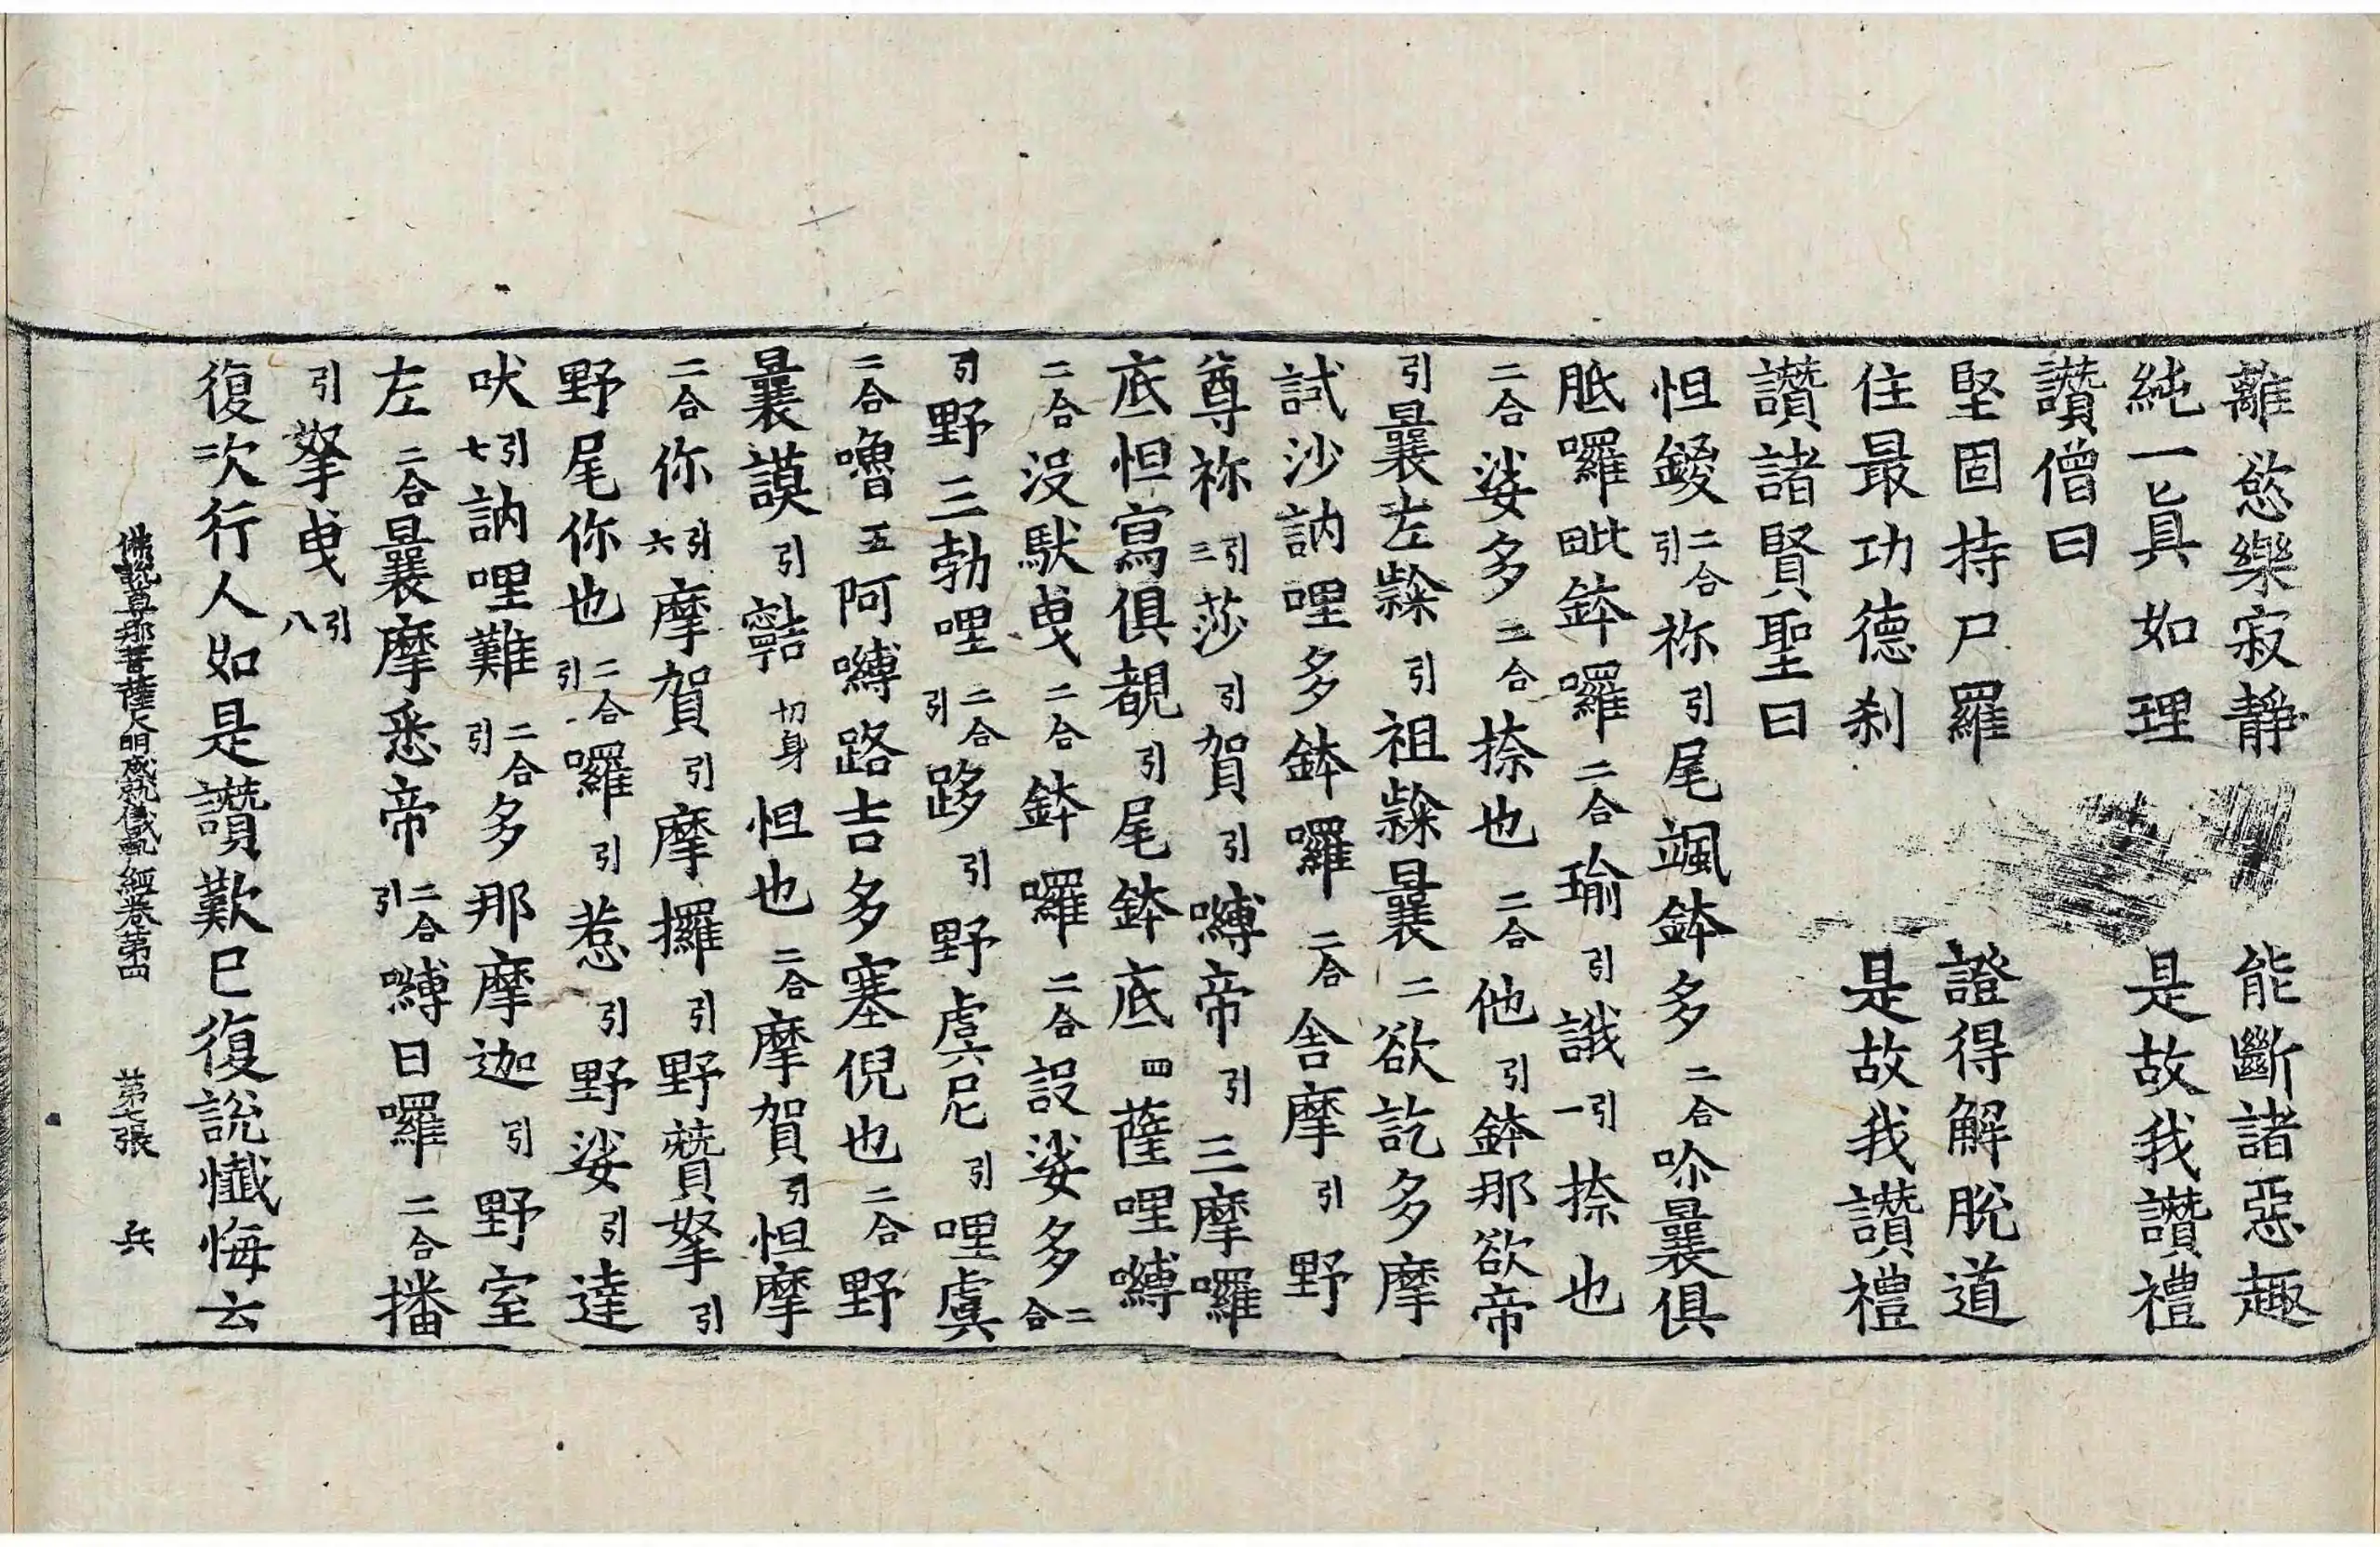 離慾樂寂靜　能斷諸惡趣
純一眞如理　是故我讚禮
讚僧曰
堅固持尸羅　證得解脫道
住最功德刹　是故我讚禮
讚諸賢聖曰
怛鑁二合引祢引尾颯鉢多二合吤曩俱
胝囉毗鉢囉二合瑜引誐引一捺也
二合娑多二合捺也二合他引鉢那欲帝
引曩左𥻦引祖𥻦曩二欲訖多摩
試沙訥哩多鉢囉二合舍摩引野
尊祢引三莎引賀引嚩帝引三摩囉
底怛寫俱覩引尾鉢底四薩哩嚩
二合沒馱曳二合鉢囉二合設娑多二合
引野三勃哩二合引跢引野虞尼引哩虞
二合嚕五阿嚩路吉多塞倪也二合野
曩謨引切身怛也二合摩賀引怛摩
二合你引六摩賀引摩攞引野贊拏引
野尾你也二合引囉引惹引野娑引達
吠引七訥哩難二合引多那摩迦引野室
左二合曩摩悉帝二合引嚩日囉二合播
引拏曳引八
復次行人如是讚歎已復說懺悔云
佛說尊那菩薩大明成就儀軌經卷第四　第七張　兵